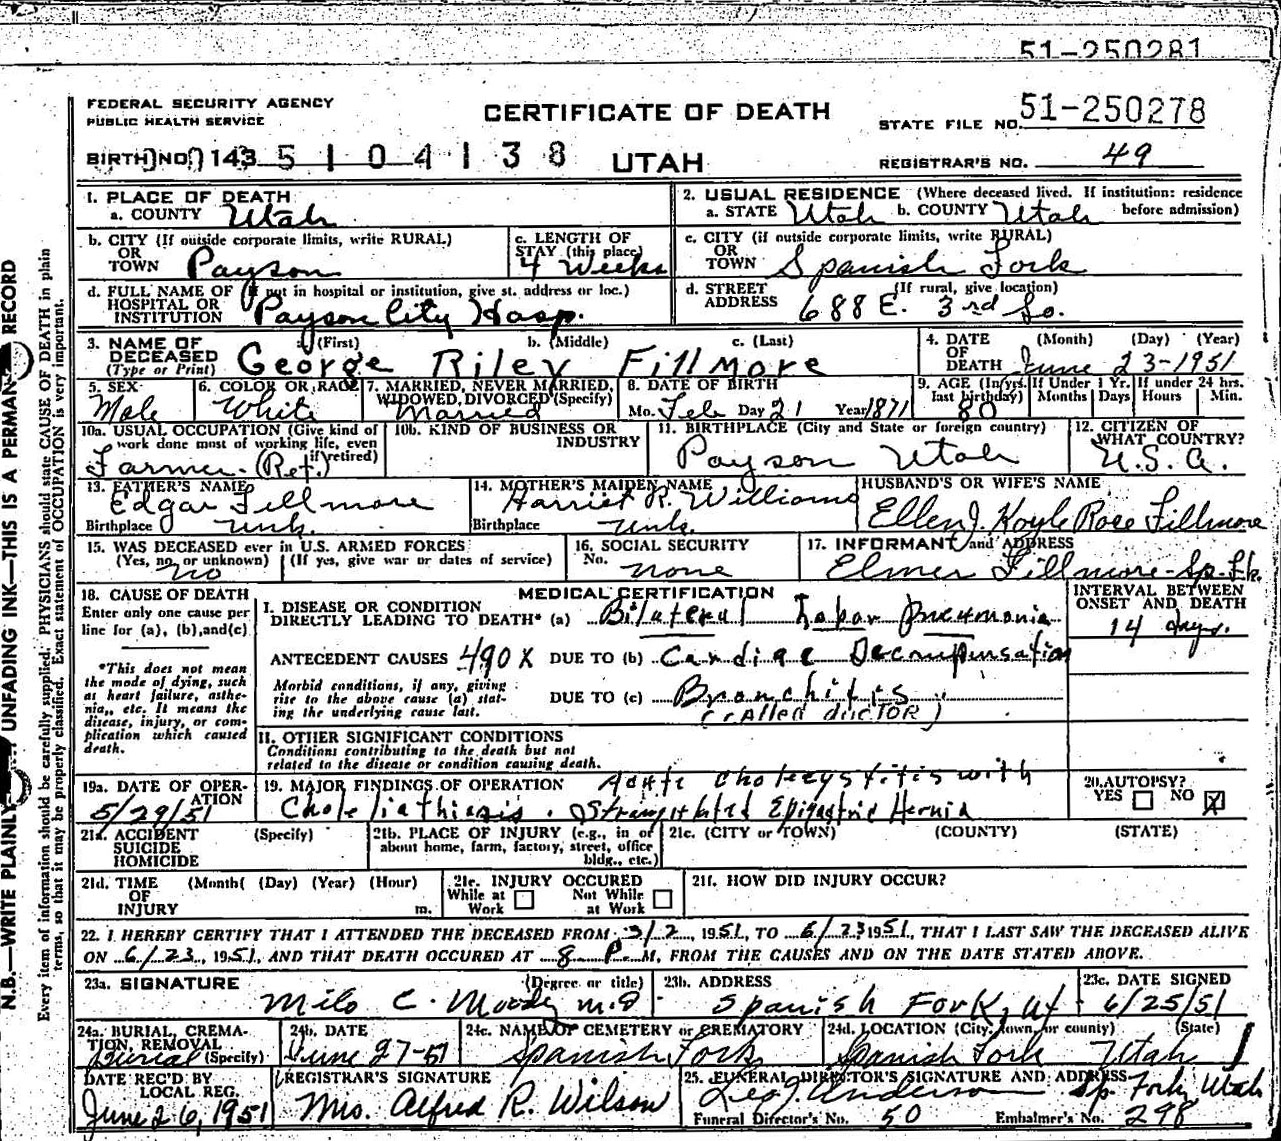 51-250281
FEDERAL SECURITY AGENCY
PUBLIC HEALTH SERVICE
CERTIFICATE OF DEATH
STATE FILE NO. 51-250278
BIRTH NO. 143 5 1 0 4 1 3 8
UTAH
REGISTRAR'S NO. 49
N.B.—WRITE PLAINLY UNFADING INK—THIS IS A PERMAN RECORD
Every item of information should be carefully supplied. PHYSICIANS should state CAUSE OF DEATH in plain
terms, so that it may be properly classified. Exact statement of OCCUPATION is very important.
1. PLACE OF DEATH
a. COUNTY Utah
2. USUAL RESIDENCE (Where deceased lived. If institution: residence
a. STATE Utah b. COUNTY Utah before admission)
b. CITY (If outside corporate limits, write RURAL)
OR
TOWN Payson
c. LENGTH OF
STAY (this place)
4 Weeks
c. CITY (if outside corporate limits, write RURAL)
OR
TOWN Spanish Fork
d. FULL NAME OF (If not in hospital or institution, give st. address or loc.)
HOSPITAL OR
INSTITUTION Payson City Hosp.
d. STREET (If rural, give location)
ADDRESS 688 E. 3rd So.
3. NAME OF (First) b. (Middle) c. (Last)
DECEASED George Riley Fillmore
(Type or Print)
4. DATE (Month) (Day) (Year)
OF
DEATH June 23-1951
5. SEX
Male
6. COLOR OR RACE
White
7. MARRIED, NEVER MARRIED,
WIDOWED, DIVORCED (Specify)
Married
8. DATE OF BIRTH
Mo. Feb Day 21 Year 1871
9. AGE (In yrs. last birthday)
80
If Under 1 Yr.
Months Days
If under 24 hrs.
Hours Min.
10a. USUAL OCCUPATION (Give kind of
work done most of working life, even
if retired)
Farmer (Ret.)
10b. KIND OF BUSINESS OR
INDUSTRY
11. BIRTHPLACE (City and State or foreign country)
Payson Utah
12. CITIZEN OF
WHAT COUNTRY?
U.S.A.
13. FATHER'S NAME
Edgar Fillmore
Birthplace Unk.
14. MOTHER'S MAIDEN NAME
Harriet R. Williams
Birthplace Unk.
HUSBAND'S OR WIFE'S NAME
Ellen J. Koyle Fillmore
15. WAS DECEASED ever in U.S. ARMED FORCES
(Yes, no, or unknown) (If yes, give war or dates of service)
no
16. SOCIAL SECURITY
No. none
17. INFORMANT and ADDRESS
Elmer Fillmore - Sp. Fk.
18. CAUSE OF DEATH
Enter only one cause per
line for (a), (b), and (c)
*This does not mean
the mode of dying, such
as heart failure, asthe-
nia,, etc. It means the
disease, injury, or com-
plication which caused
death.
MEDICAL CERTIFICATION
I. DISEASE OR CONDITION
DIRECTLY LEADING TO DEATH* (a) Bilateral Lobar Pneumonia
ANTECEDENT CAUSES 490X DUE TO (b) Cardiac Decompensation
Morbid conditions, if any, giving
rise to the above cause (a) stat-
ing the underlying cause last.
DUE TO (c) Bronchitis
(CALLED DOCTOR)
INTERVAL BETWEEN
ONSET AND DEATH
14 days.
II. OTHER SIGNIFICANT CONDITIONS
Conditions contributing to the death but not
related to the disease or condition causing death.
19a. DATE OF OPER-
ATION
5/29/51
19. MAJOR FINDINGS OF OPERATION Acute cholecystitis with
Cholelithiasis. Strangulated Epigastric Hernia
20. AUTOPSY?
YES NO X
21a. ACCIDENT (Specify)
SUICIDE
HOMICIDE
21b. PLACE OF INJURY (e.g., in or
about home, farm, factory, street, office
bldg., etc.)
21c. (CITY or TOWN) (COUNTY) (STATE)
21d. TIME (Month( (Day) (Year) (Hour)
OF
INJURY m.
21e. INJURY OCCURED
While at Work Not While at Work
21f. HOW DID INJURY OCCUR?
22. I HEREBY CERTIFY THAT I ATTENDED THE DECEASED FROM 3/2, 1951, TO 6/23 1951, THAT I LAST SAW THE DECEASED ALIVE
ON 6/23, 1951, AND THAT DEATH OCCURED AT 8 P. M, FROM THE CAUSES AND ON THE DATE STATED ABOVE.
23a. SIGNATURE (Degree or title)
Milo C. Moody M.D.
23b. ADDRESS
Spanish Fork, Ut
23c. DATE SIGNED
6/25/51
24a. BURIAL, CREMA-
TION, REMOVAL
Burial (Specify)
24b. DATE
June 27-51
24c. NAME OF CEMETERY or CREMATORY
Spanish Fork
24d. LOCATION (City, town, or county) (State)
Spanish Fork Utah
DATE REC'D BY
LOCAL REG.
June 26, 1951
REGISTRAR'S SIGNATURE
Mrs. Alfred R. Wilson
25. FUNERAL DIRECTOR'S SIGNATURE AND ADDRESS
Anderson Sp. Fork, Utah
Funeral Director's No. 50 Embalmer's No. 298